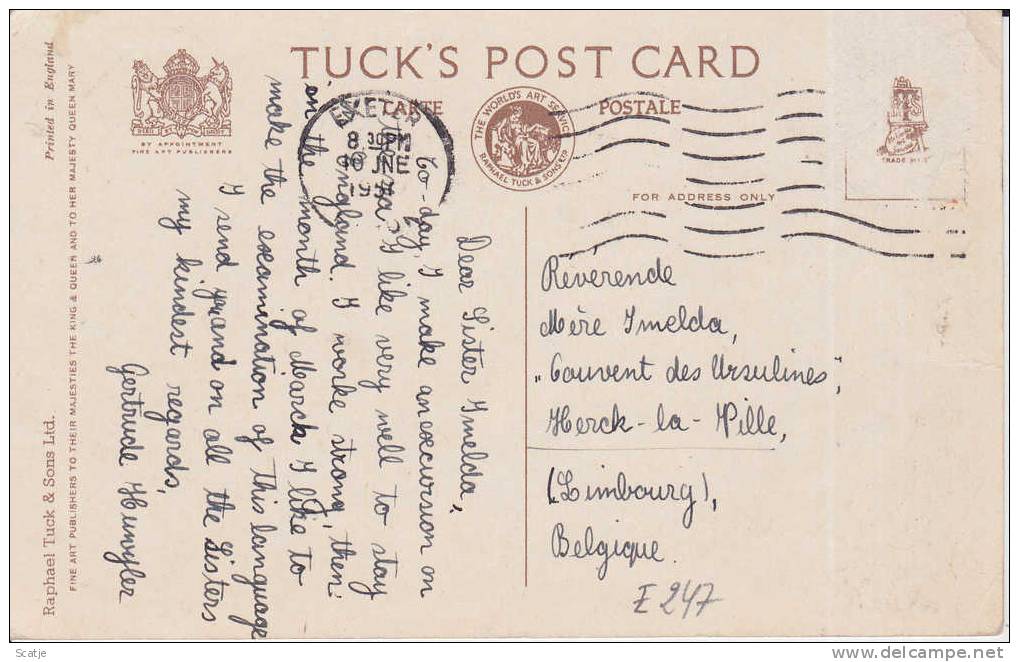 TUCK'S POST CARD
CARTE POSTALE
BY APPOINTMENT
FINE ART PUBLISHERS
THE WORLD'S ART SERVICE
RAPHAEL TUCK & SONS LTD
FOR ADDRESS ONLY
TRADE MARK
EXETER
8 30 PM
JNE
Printed in England
FINE ART PUBLISHERS TO THEIR MAJESTIES THE KING & QUEEN AND TO HER MAJESTY QUEEN MARY
Raphael Tuck & Sons Ltd.
Dear Sister Imelda,
to-day, I make an excursion on
I like very well to stay
England. I worke strong, then
in the month of March I like to
make the examination of this language
I send you and on all the Sisters
my kindest regards,
Gertrude
Révérende
Mère Imelda,
„Couvent des Ursulines",
Herck-la-Ville,
(Limbourg),
Belgique.
E 247
Scatje
www.delcampe.net